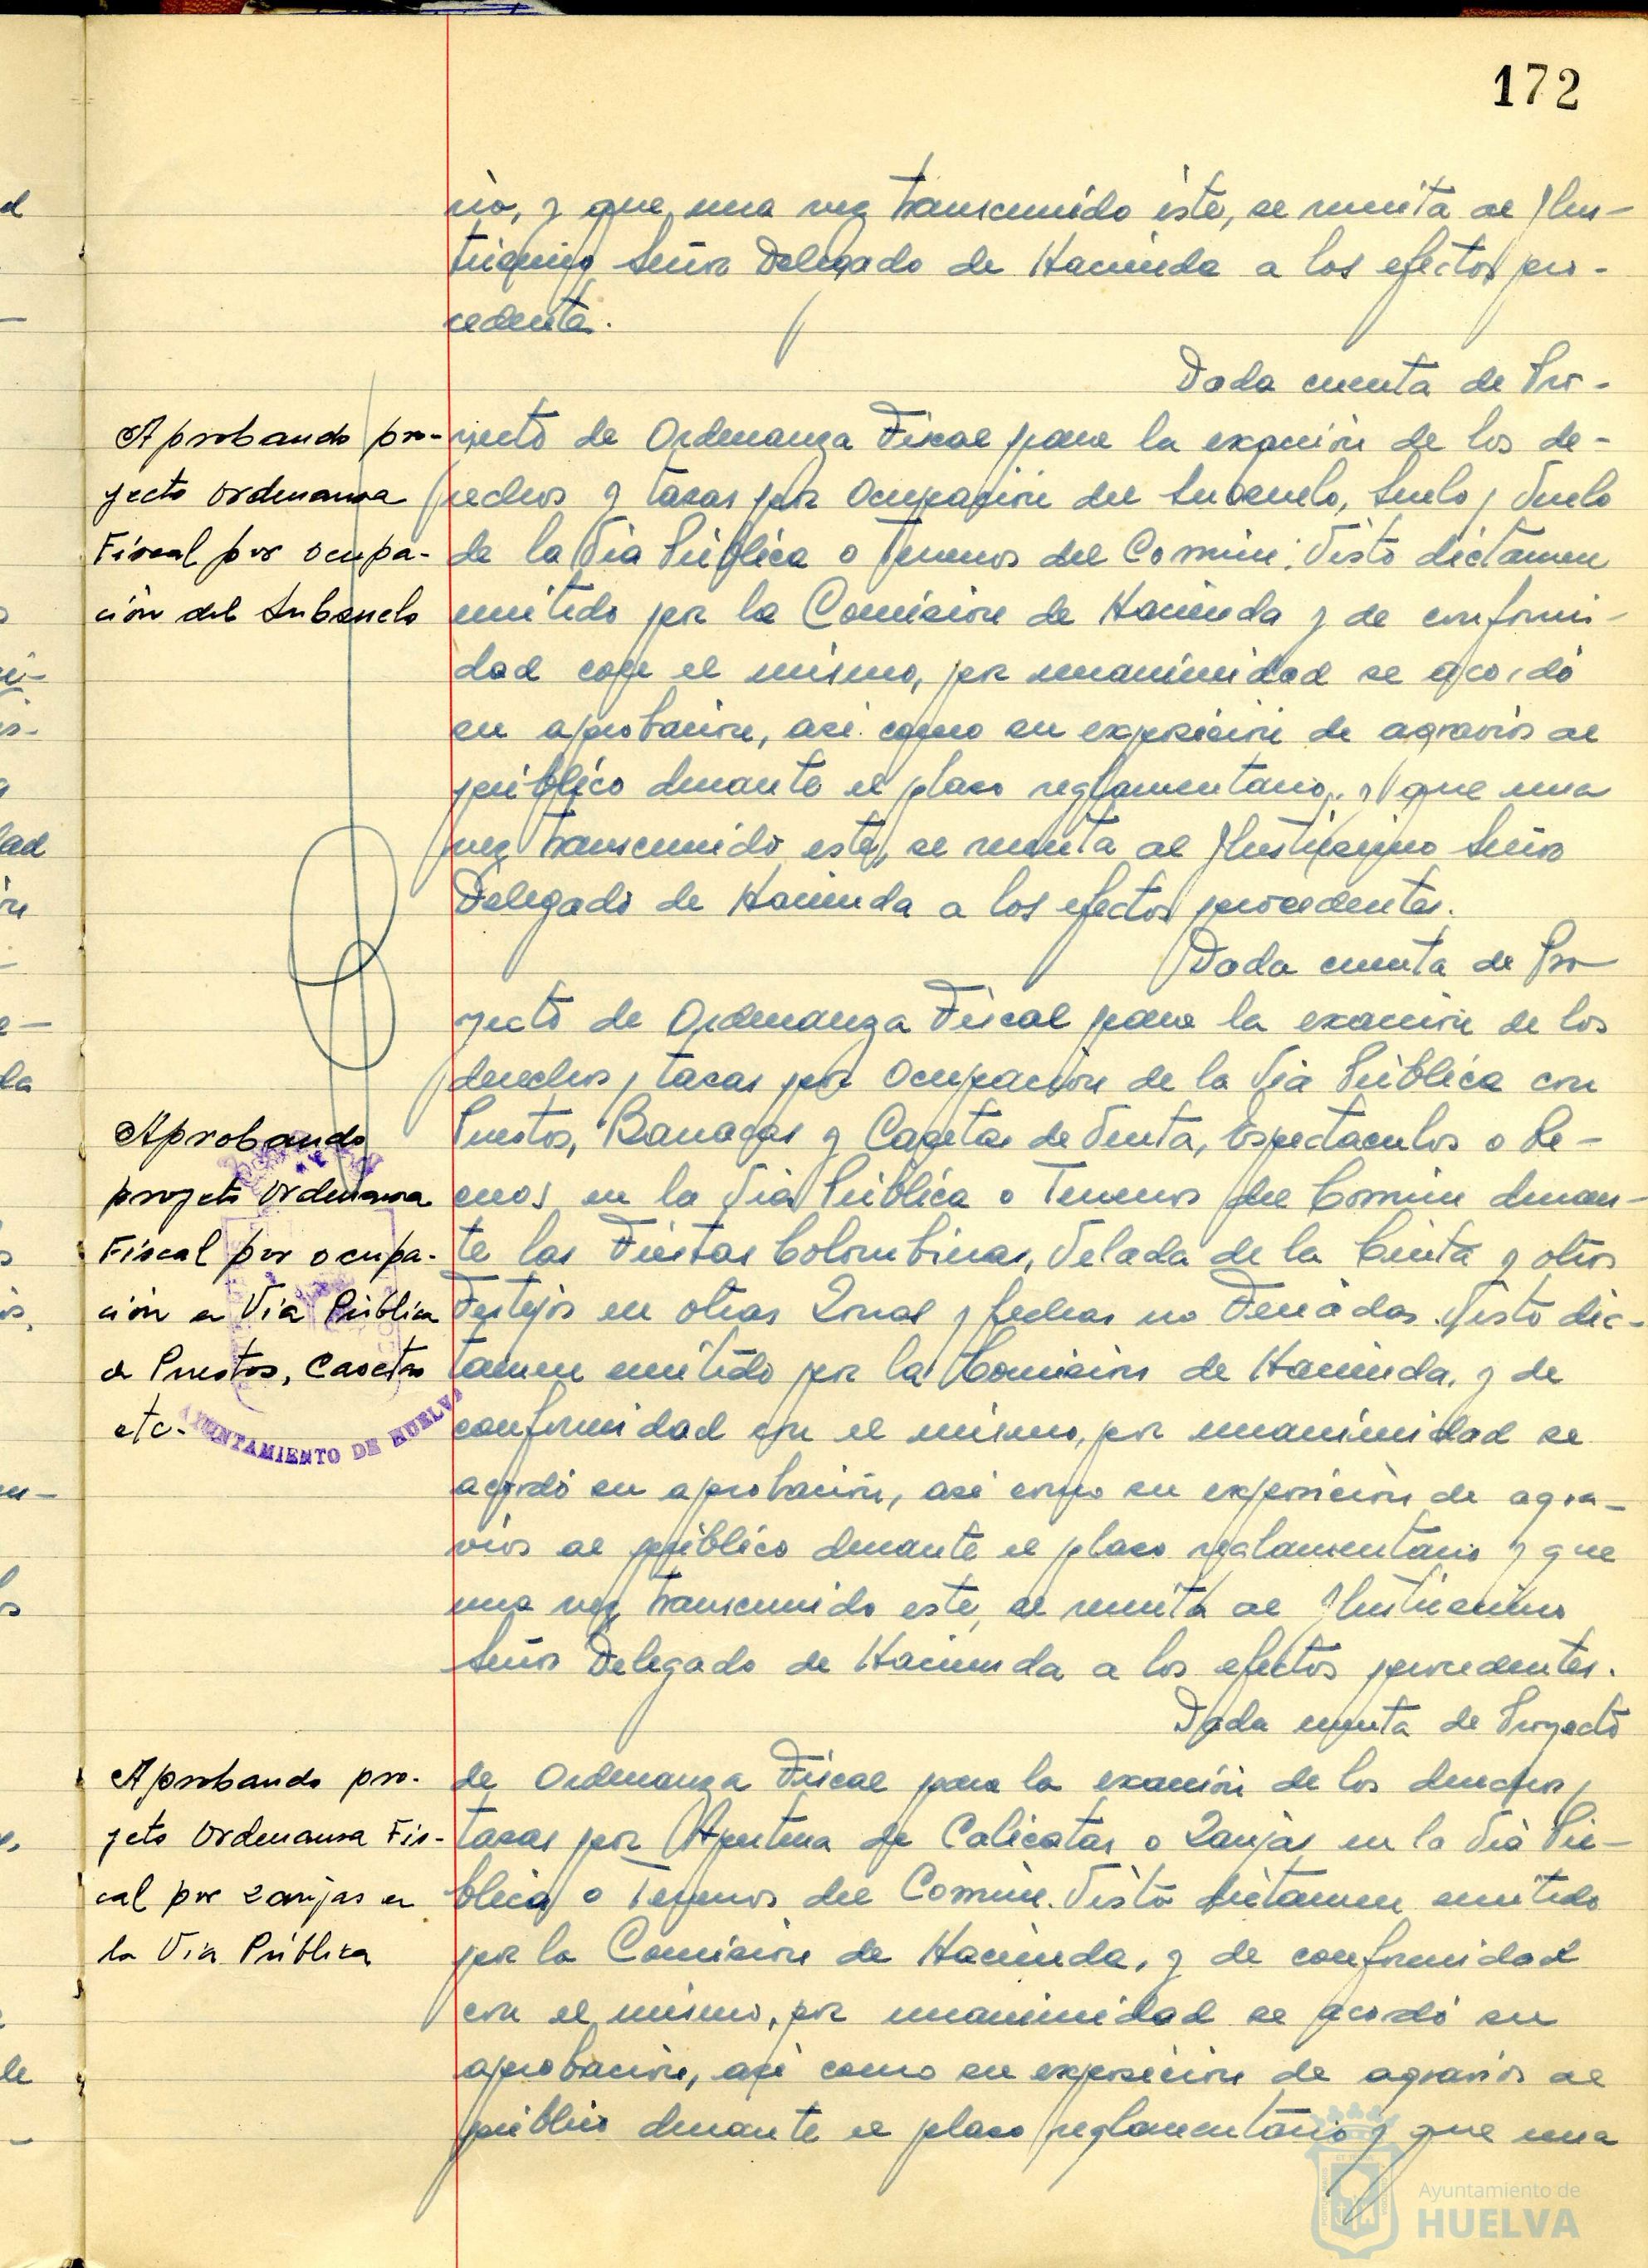 172
rio, y que una vez transcurrido éste, se remita al Ilus-
trísimo Señor Delegado de Hacienda a los efectos pro-
cedentes.
Dada cuenta de Pro-
Aprobando pro-
yecto Ordenanza
Fiscal por ocupa-
ción del Subsuelo
yecto de Ordenanza Fiscal para la exacción de los de-
rechos y tasas por Ocupación del Subsuelo, Suelo y Vuelo
de la Vía Pública o Terrenos del Común. Visto dictamen
emitido por la Comisión de Hacienda y de conformi-
dad con el mismo, por unanimidad se acordó
su aprobación, así como su exposición de agravios al
público durante el plazo reglamentario, y que una
vez transcurrido este, se remita al Ilustrísimo Señor
Delegado de Hacienda a los efectos procedentes.
Dada cuenta de Pro-
yecto de Ordenanza Fiscal para la exacción de los
derechos y tasas por Ocupación de la Vía Pública con
Aprobando
proyeto Ordenanza
Fiscal por ocupa-
ción en Vía Pública
de Puestos, Casetas
etc.
Puestos, Barracas y Casetas de Venta, Espectaculos o Re-
creos en la Vía Pública o Terrenos del Común duran-
te las Fiestas Colombinas, Velada de la Cinta y otros
Festejos en otras Zonas y fechas no Feriadas. Visto dic-
tamen emitido por la Comisión de Hacienda, y de
conformidad con el mismo, por unanimidad se
acordó su aprobación, así como su exposición de agra-
vios al público durante el plazo reglamentario y que
una vez transcurrido este, se remita al Ilustrísimo
Señor Delegado de Hacienda a los efectos procedentes.
AYUNTAMIENTO DE HUELVA
Dada cuenta de Proyecto
Aprobando pro-
yeto Ordenanza Fis-
cal por zanjas en
la Vía Pública
de Ordenanza Fiscal para la exacción de los derechos y
tasas por Apertura de Calicatas o Zanjas en la Vía Pú-
blica o Terrenos del Común. Visto dictamen emitido
por la Comisión de Hacienda, y de conformidad
con el mismo, por unanimidad se acordó su
aprobación, así como su exposición de agravios al
público durante el plazo reglamentario y que una
Ayuntamiento de
HUELVA